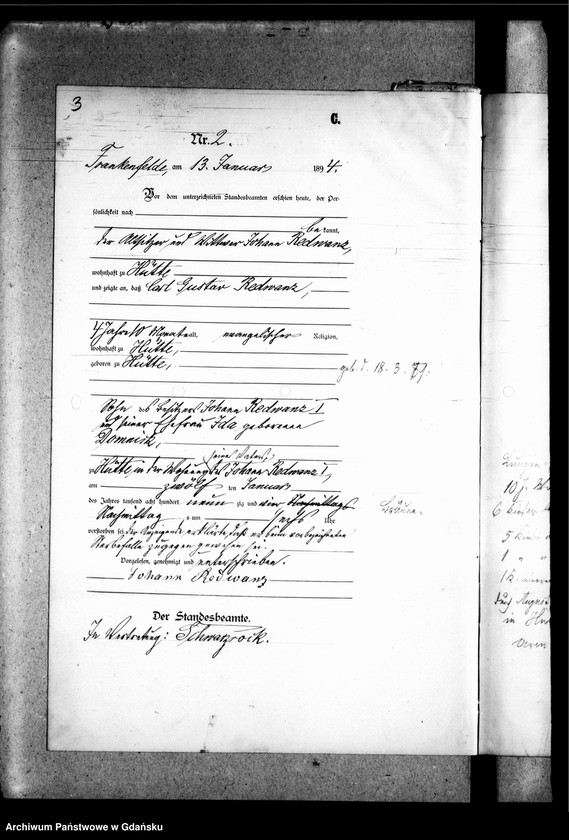 3
C.
Nr. 2.
Frankenfelde, am 13. Januar 1894.
Vor dem unterzeichneten Standesbeamten erschien heute, der Per-
sönlichkeit nach
be kannt,
der Altsitzer und Wittwer Johann Redwanz,
wohnhaft zu Hütte
und zeigte an, daß Carl Gustav Redwanz,
4 Jahre 10 Monate alt, evangelischer Religion,
wohnhaft zu Hütte,
geboren zu Hütte,
geb. d. 18. 3. 89.
Sohn des Besitzers Johann Redwanz I
und seiner Ehefrau Ida geborenen
Domnick,
zu Hütte, in der Wohnung seines Vaters, des Johann Redwanz I,
am zwölf ten Januar
des Jahres tausend acht hundert neun zig und vier Vormittags
Nachmittag s um sechs Uhr
Bräune.
verstorben sei, der Anzeigende erklärte, daß er beim vorbezeichneten
Sterbefalle zugegen gewesen sei.
Vorgelesen, genehmigt und unterschrieben.
Johann Redwanz
Der Standesbeamte.
In Vertretung: Schwarzrock.
Lungen
10 J.
6
5
1 " "
1 k.
August
in
Archiwum Państwowe w Gdańsku